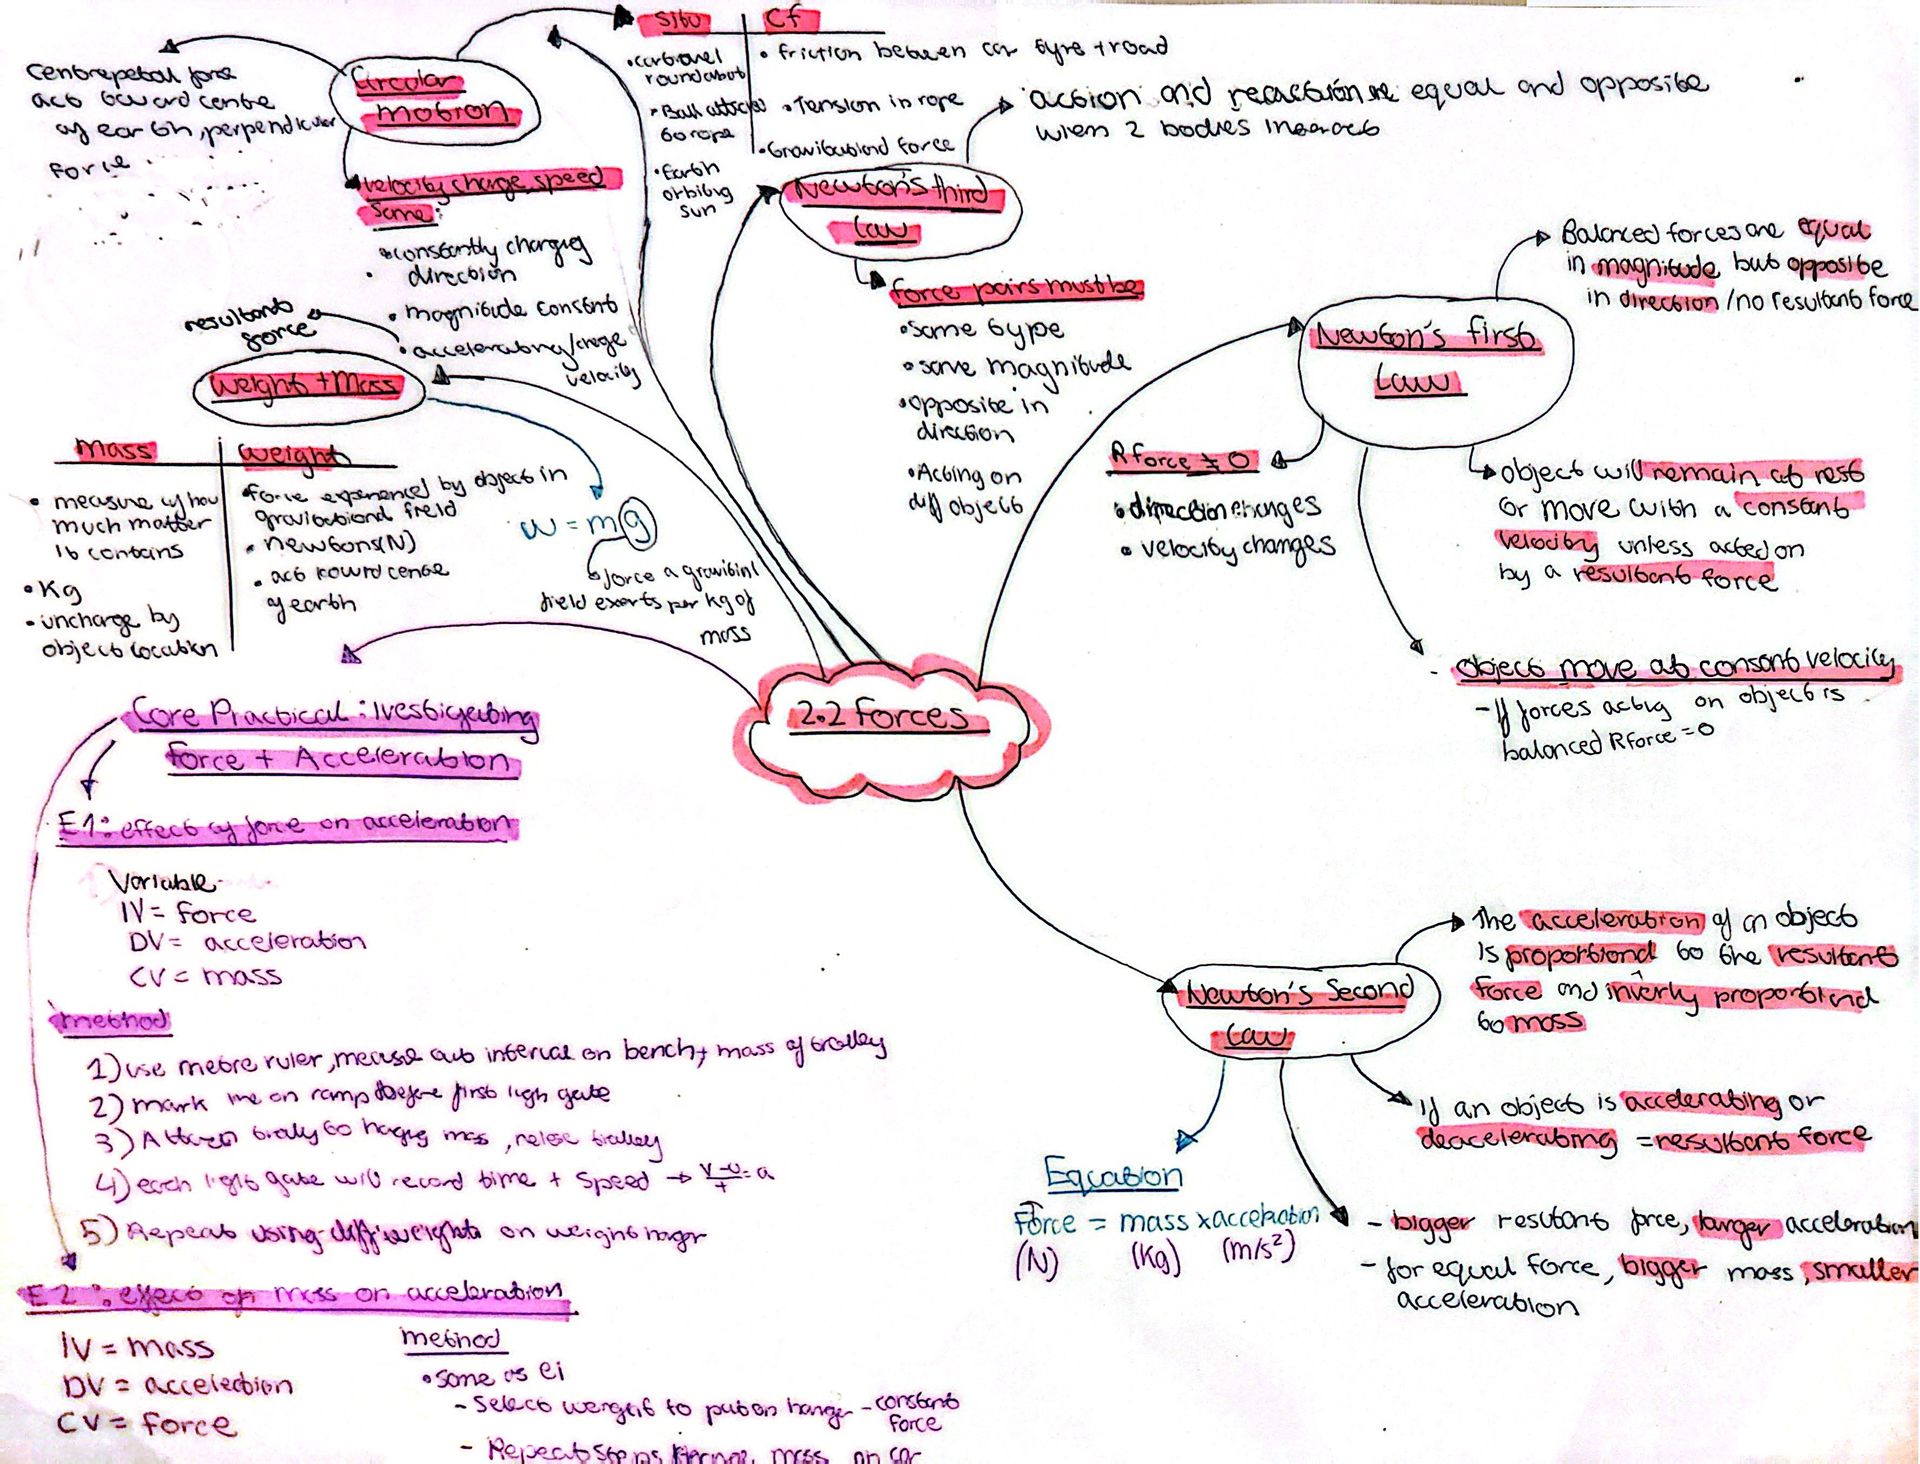 2.2 Forces
Circular
motion
Centrepetal force
act toward centre
of earth, perpendicular
force
velocity change, speed
same:
• constantly changing
direction
• magnitude constant
• accelerating/change
velocity
Situ
Cf
• car travel
roundabout
• Ball attached
to rope
• Earth
orbiting
sun
• friction between car tyre + road
• Tension in rope
• Gravitational force
Newton's third
Law
• action and reaction are equal and opposite
when 2 bodies interact
force pairs must be
• same type
• same magnitude
• opposite in
direction
• Acting on
diff object
Newton's first
Law
Balanced forces are equal
in magnitude but opposite
in direction / no resultant force
R force ≠ 0
• direction changes
• velocity changes
object will remain at rest
or move with a constant
velocity unless acted on
by a resultant force
- object move at consant velocity
- If forces acting on object is
balanced R force = 0
resultant
force
Weight + Mass
Mass
• measure of how
much matter
it contains
• Kg
• unchange by
object location
Weight
• force experienced by object in
gravitational field
• newtons (N)
• act toward centre
of earth
W = mg
force a gravitinl
field exerts per kg of
mass
Core Practical: Ivestigating
force + Acceleration
E1: effect of force on acceleration
Variable
IV = force
DV = acceleration
CV = mass
method
1) use metre ruler, measure out interval on bench, + mass of trolley
2) mark line on ramp before first ligh gate
3) Attach trolly to hanging mass, release trolley
4) each light gate will record time + speed → v-u/t = a
5) Repeat using diff weights on weight hanger
E2: effect of mass on acceleration
IV = mass
DV = acceleration
CV = force
method
• same as e1
- select weight to put on hanger - constant
force
- Repeat steps change mass on car
Newton's Second
Law
The acceleration of an object
is proportional to the resultant
force and inversly proportional
to mass
If an object is accelerating or
deaccelerating = resultant force
- bigger resultant force, larger acceleration
- for equal force, bigger mass, smaller
acceleration
Equation
Force = mass x acceleration
(N) (Kg) (m/s²)